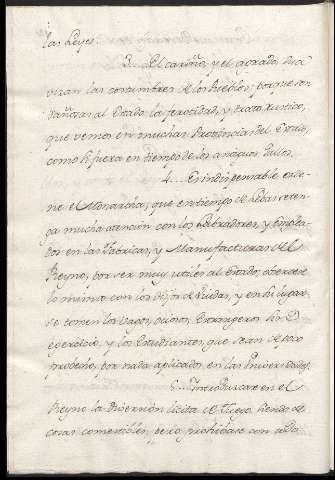 las Leyes.
3... El cariño, y el agrado, sua
vizan las costumbres de los Pueblos, porque son
dañosas al Estado la ferocidad, y trato rustico,
que vemos en muchas Provincias del Estado,
como si fuera en tiempo de los antiguos
4... Es indispensable orde
ne el Monarcha, que en tiempo de Lebas se ten
ga mucha atención con los Labradores, y Emplea
dos en las Fabricas, y Manufacturas del
Reyno, por ser muy utiles al Estado; observese
lo mismo con los Hijos de Viudas, y en su lugar
se tomen los vagos, ociosos, Estrangeros sin
exercicio, y los Estudiantes, que sean de poco
probecho, por nada aplicados en las Universidades.
5... Introduzcase en el
Reyno la diversión licita de Juego, siendo de
cosas comestibles, pero prohibase con toda